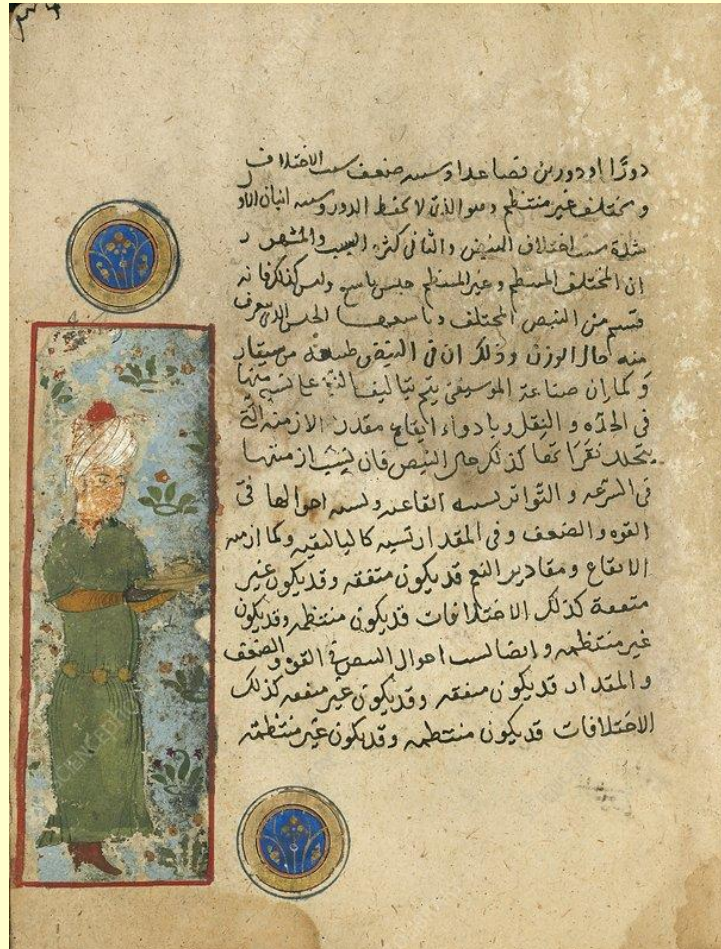 دورًا او دورين فصاعدا وسببه ضعف سبب الاختلاف
ومختلف غير منتظم وهو الذى لا يحفظ الدور وسببه
سبب اختلاف النبض والثانى كثرة السبب والمشهور
ان المختلف المنتظم وغير المنتظم جنس تاسع وليس كذلك فانه
قسم من النبض المختلف وتاسعها الجنس الذى يعرف
منه حال الوزن وذلك ان فى النبض طبيعة موسيقار
وكما ان صناعة الموسيقى يتم بتاليف النغم على نسبة بينها
فى الحدّه و الثقل وبادوار ايقاع مقدار الازمنه الّتى
يتخلل نقراتها كذلك حال النبض فان نسب ازمنتها
فى السرعه و التواتر نسبه ايقاعيه ونسبه احوالها فى
القوه والضعف وفى المقدار نسبه كالتاليفيه وكما ازمنه
الايقاع ومقادير النغم قد يكون متفقه وقد يكون غير
متفقة كذلك الاختلافات قد يكون منتظمه وقد يكون
غير منتظمه وايضا نسب احوال النبض فى القوه والضعف
والمقدار قد يكون متفقه وقد يكون غير متفقه كذلك
الاختلافات قد يكون منتظمه وقد يكون غير منتظمه